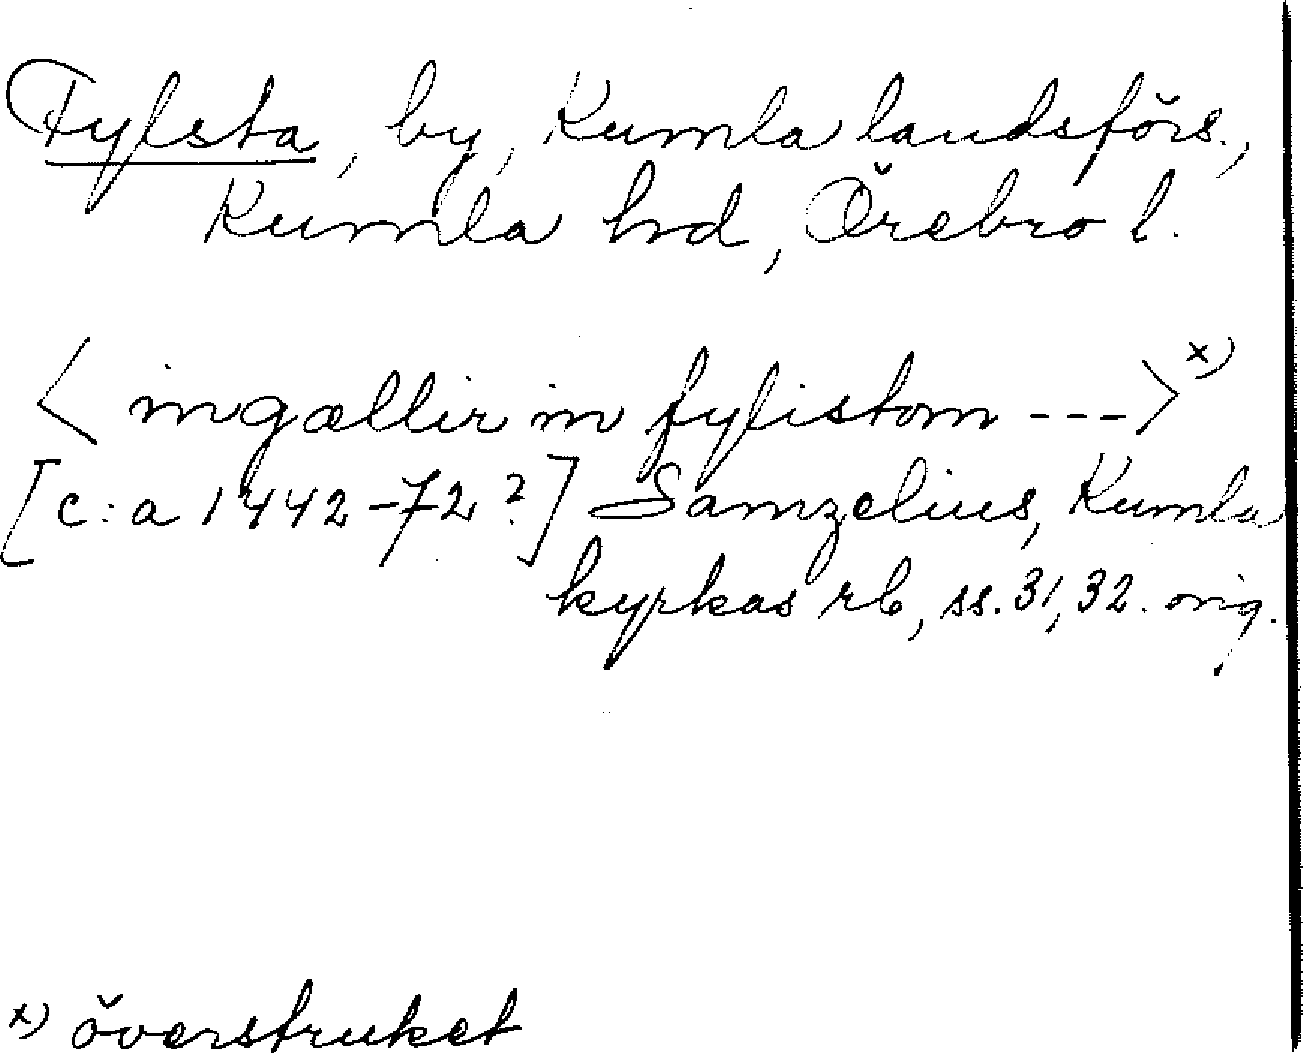 Fylsta, by, Kumla landsförs.,
Kumla hd, Örebro l.
< ingællir in fylistom --- > x)
[c:a 1442-72?] Samzelius, Kumla
kyrkas rb, ss. 31, 32. orig.
x) överstruket